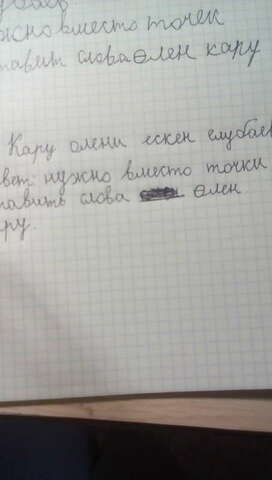 жно вместо точек
тавит слова өлен кару
Кару олени ескен елубаев
вет: нужно вместо точки
тавить слова өлен
ру.